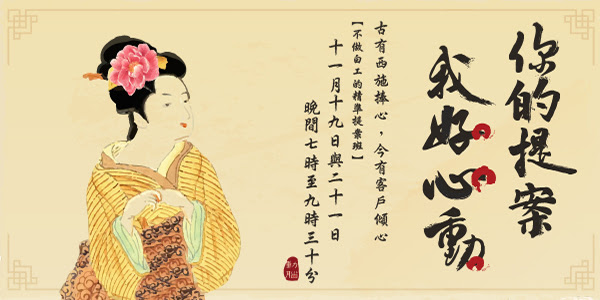 你的提案
我好心動
古有西施捧心，今有客戶傾心
【不做白工的精準提案班】
十一月十九日與二十一日
晚間七時至九時三十分